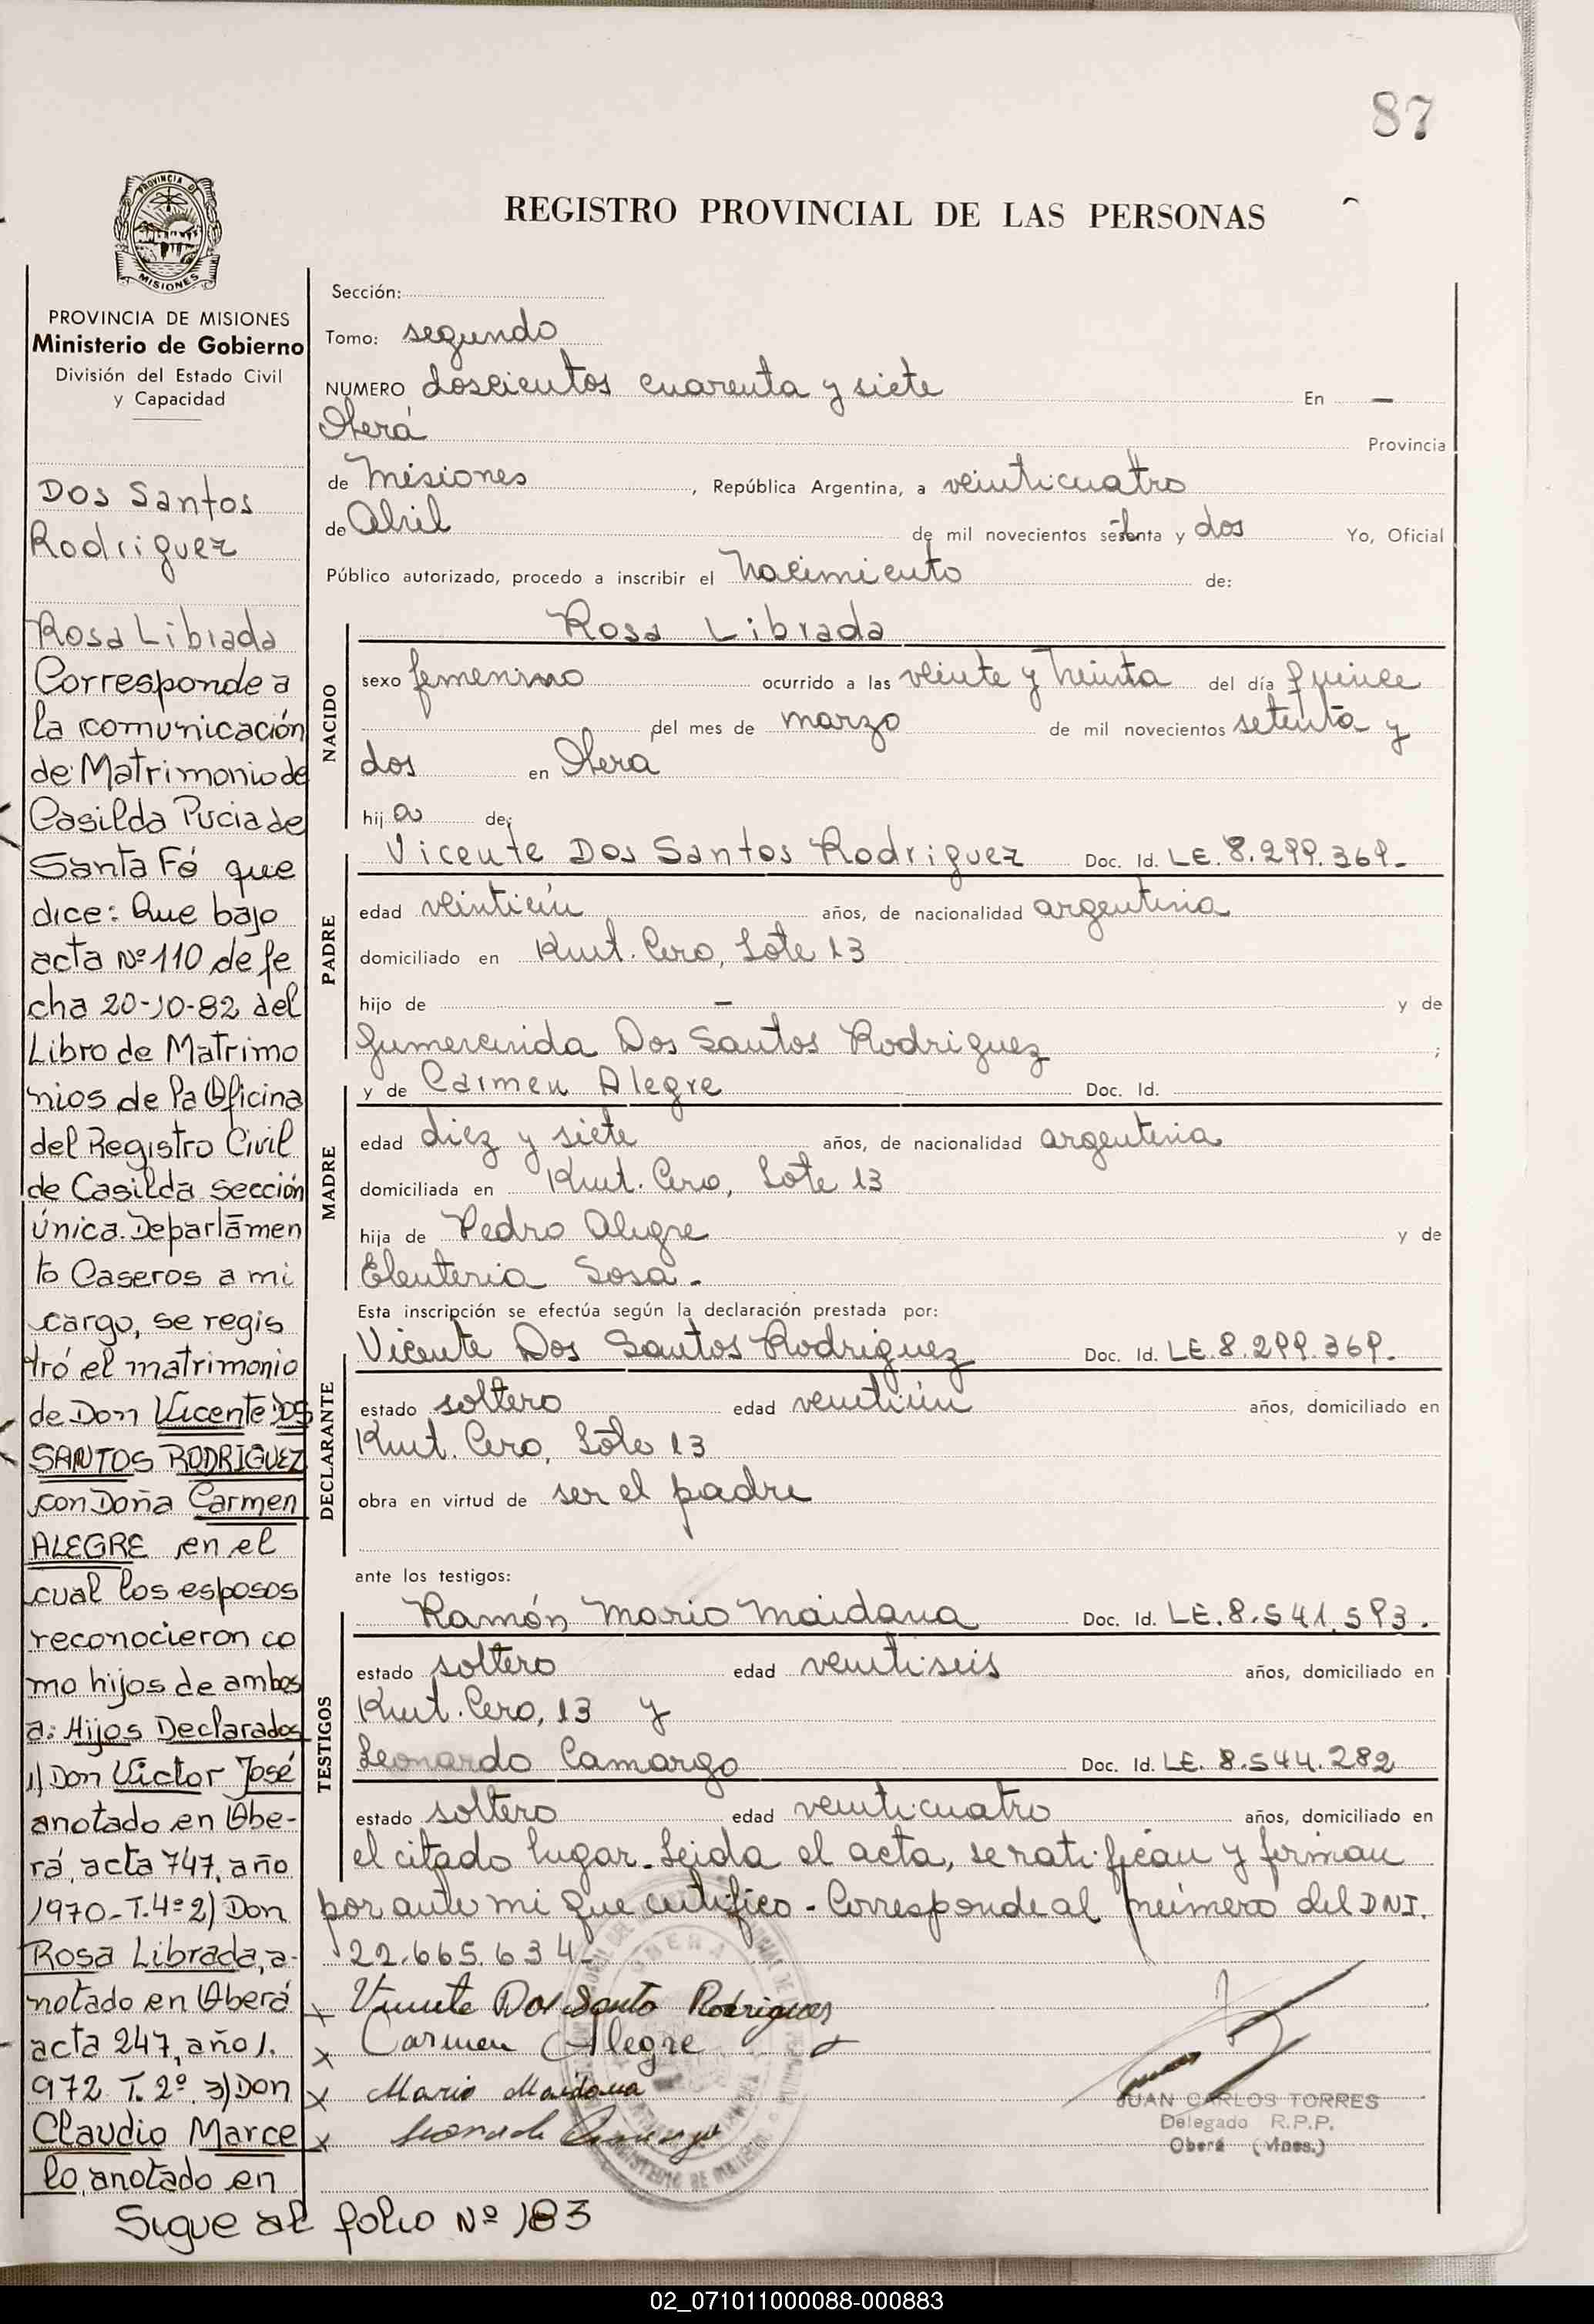 87
REGISTRO PROVINCIAL DE LAS PERSONAS
PROVINCIA DE MISIONES
PROVINCIA DE MISIONES
Ministerio de Gobierno
División del Estado Civil
y Capacidad
Dos Santos
Rodriguez
Rosa Librada
Corresponde a
la comunicación
de Matrimonio de
Casilda Pucia de
Santa Fé que
dice: Que bajo
acta Nº 110 de fe
cha 20-10-82 del
Libro de Matrimo
nios de la Oficina
del Registro Civil
de Casilda sección
única. Departamen
to Caseros a mi
cargo, se regis
tró el matrimonio
de Don Vicente DOS
SANTOS RODRIGUEZ
con Doña Carmen
ALEGRE en el
cual los esposos
reconocieron co
mo hijos de ambos
a: Hijos Declarados
1) Don Victor José
anotado en Obe-
rá, acta 747, año
1970-T.4º 2) Don
Rosa Librada, a-
notado en Oberá
acta 247, año 1.
972 T. 2º 3) Don
Claudio Marce
lo, anotado en
Sigue al folio Nº 183
Sección:
Tomo: segundo
NUMERO doscientos cuarenta y siete En —
Oberá Provincia
de Misiones, República Argentina, a veinticuatro
de Abril de mil novecientos setenta y dos Yo, Oficial
Público autorizado, procedo a inscribir el Nacimiento de:
NACIDO
Rosa Librada
sexo femenino ocurrido a las veinte y treinta del día quince
del mes de marzo de mil novecientos setenta y
dos en Obera
hija de:
PADRE
Vicente Dos Santos Rodriguez Doc. Id. LE. 8.299.369.-
edad veintiún años, de nacionalidad argentina
domiciliado en Kmt. Cero, Lote 13
hijo de — y de
Gumercinda Dos Santos Rodriguez ;
MADRE
y de Carmen Alegre Doc. Id.
edad diez y siete años, de nacionalidad argentina
domiciliada en Kmt. Cero, Lote 13
hija de Pedro Alegre y de
Eleuteria Sosa.-
Esta inscripción se efectúa según la declaración prestada por:
DECLARANTE
Vicente Dos Santos Rodriguez Doc. Id. LE. 8.299.369.-
estado soltero edad ventiún años, domiciliado en
Kmt. Cero, Lote 13
obra en virtud de ser el padre
ante los testigos:
TESTIGOS
Ramón Mario Maidana Doc. Id. LE. 8.541.593.
estado soltero edad ventiseis años, domiciliado en
Kmt. Cero, 13 y
Leonardo Camargo Doc. Id. LE. 8.544.282
estado soltero edad venticuatro años, domiciliado en
el citado lugar. Leida el acta, se ratifican y firman
por ante mi que certifico.- Corresponde al número del DNI.
22.665.634-
x Vicente Dos Santo Rodrigues
x Carmen Alegre
x Mario Maidana
x Leonardo Camargo
JUAN CARLOS TORRES
Delegado R.P.P.
Oberá (Mnes.)
02_071011000088-000883